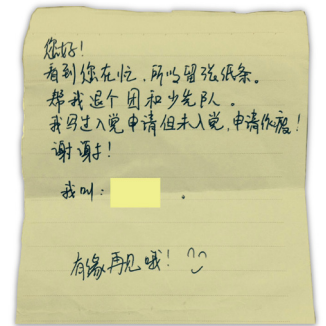 您好！
看到您在忙，所以留张纸条。
帮我退个团和少先队。
我写过入党申请但未入党，申请作废！
谢谢！
我叫：　　　。
有缘再见哦！